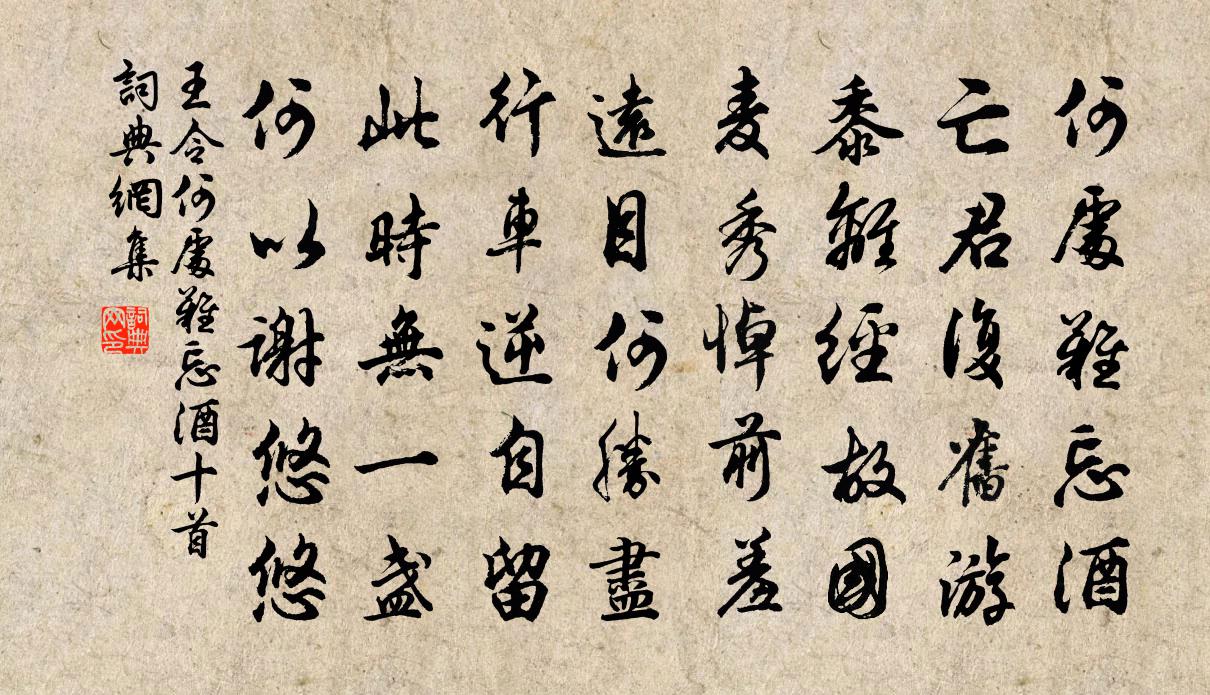 何處難忘酒
亡君復舊游
黍離經故國
麦秀悼前羞
遠目何勝盡
行車逆自留
此時無一盞
何以謝悠悠
王令何處難忘酒十首
詞典網集
詞典
网印